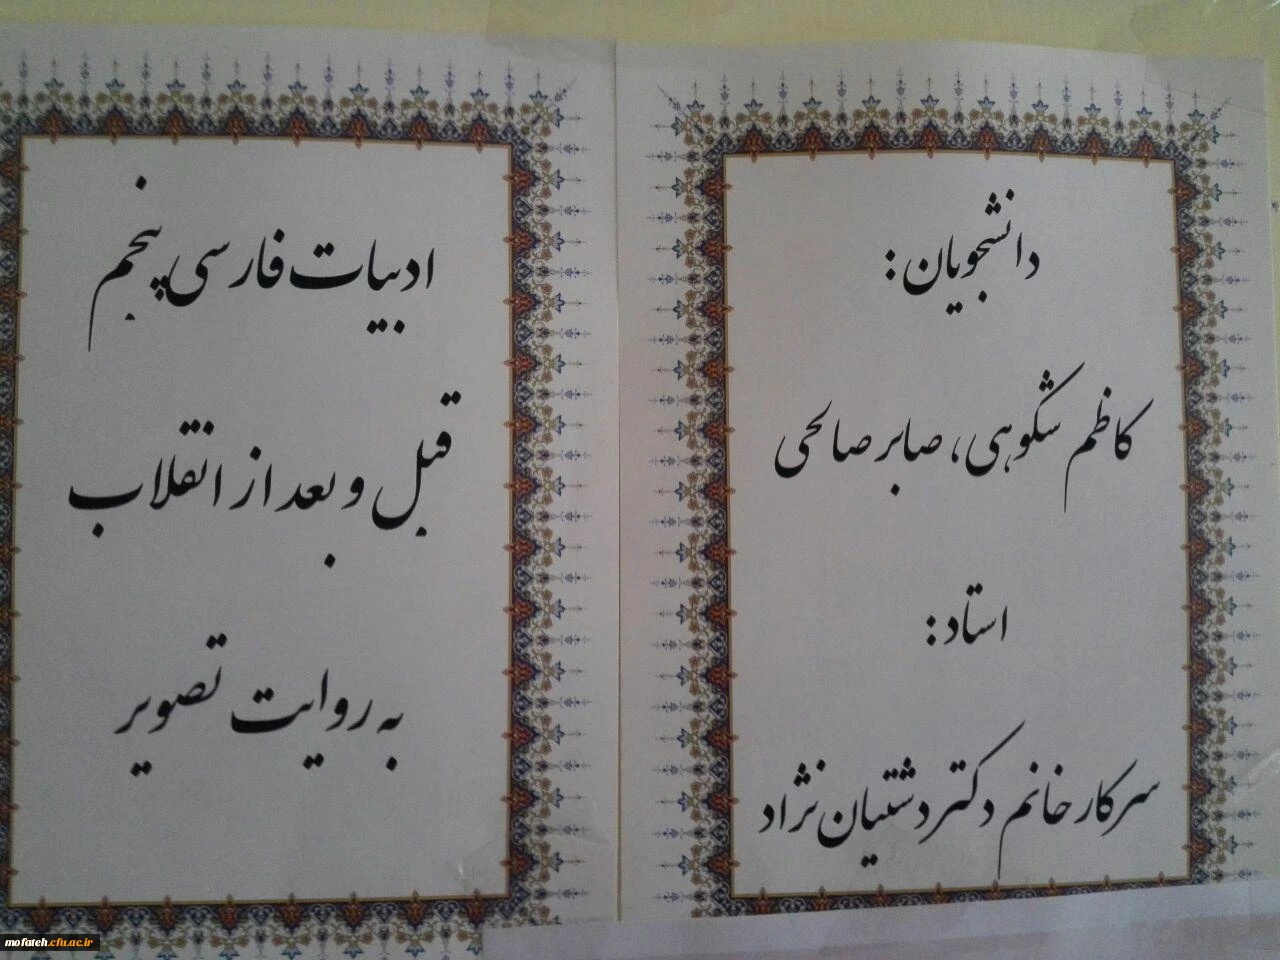 دانشجویان:
کاظم شکوهی، صابر صالحی
استاد:
سرکار خانم دکتر دشتبان نژاد
ادبیات فارسی پنجم
قبل و بعد از انقلاب
به روایت تصویر
mofateh.cfu.ac.ir